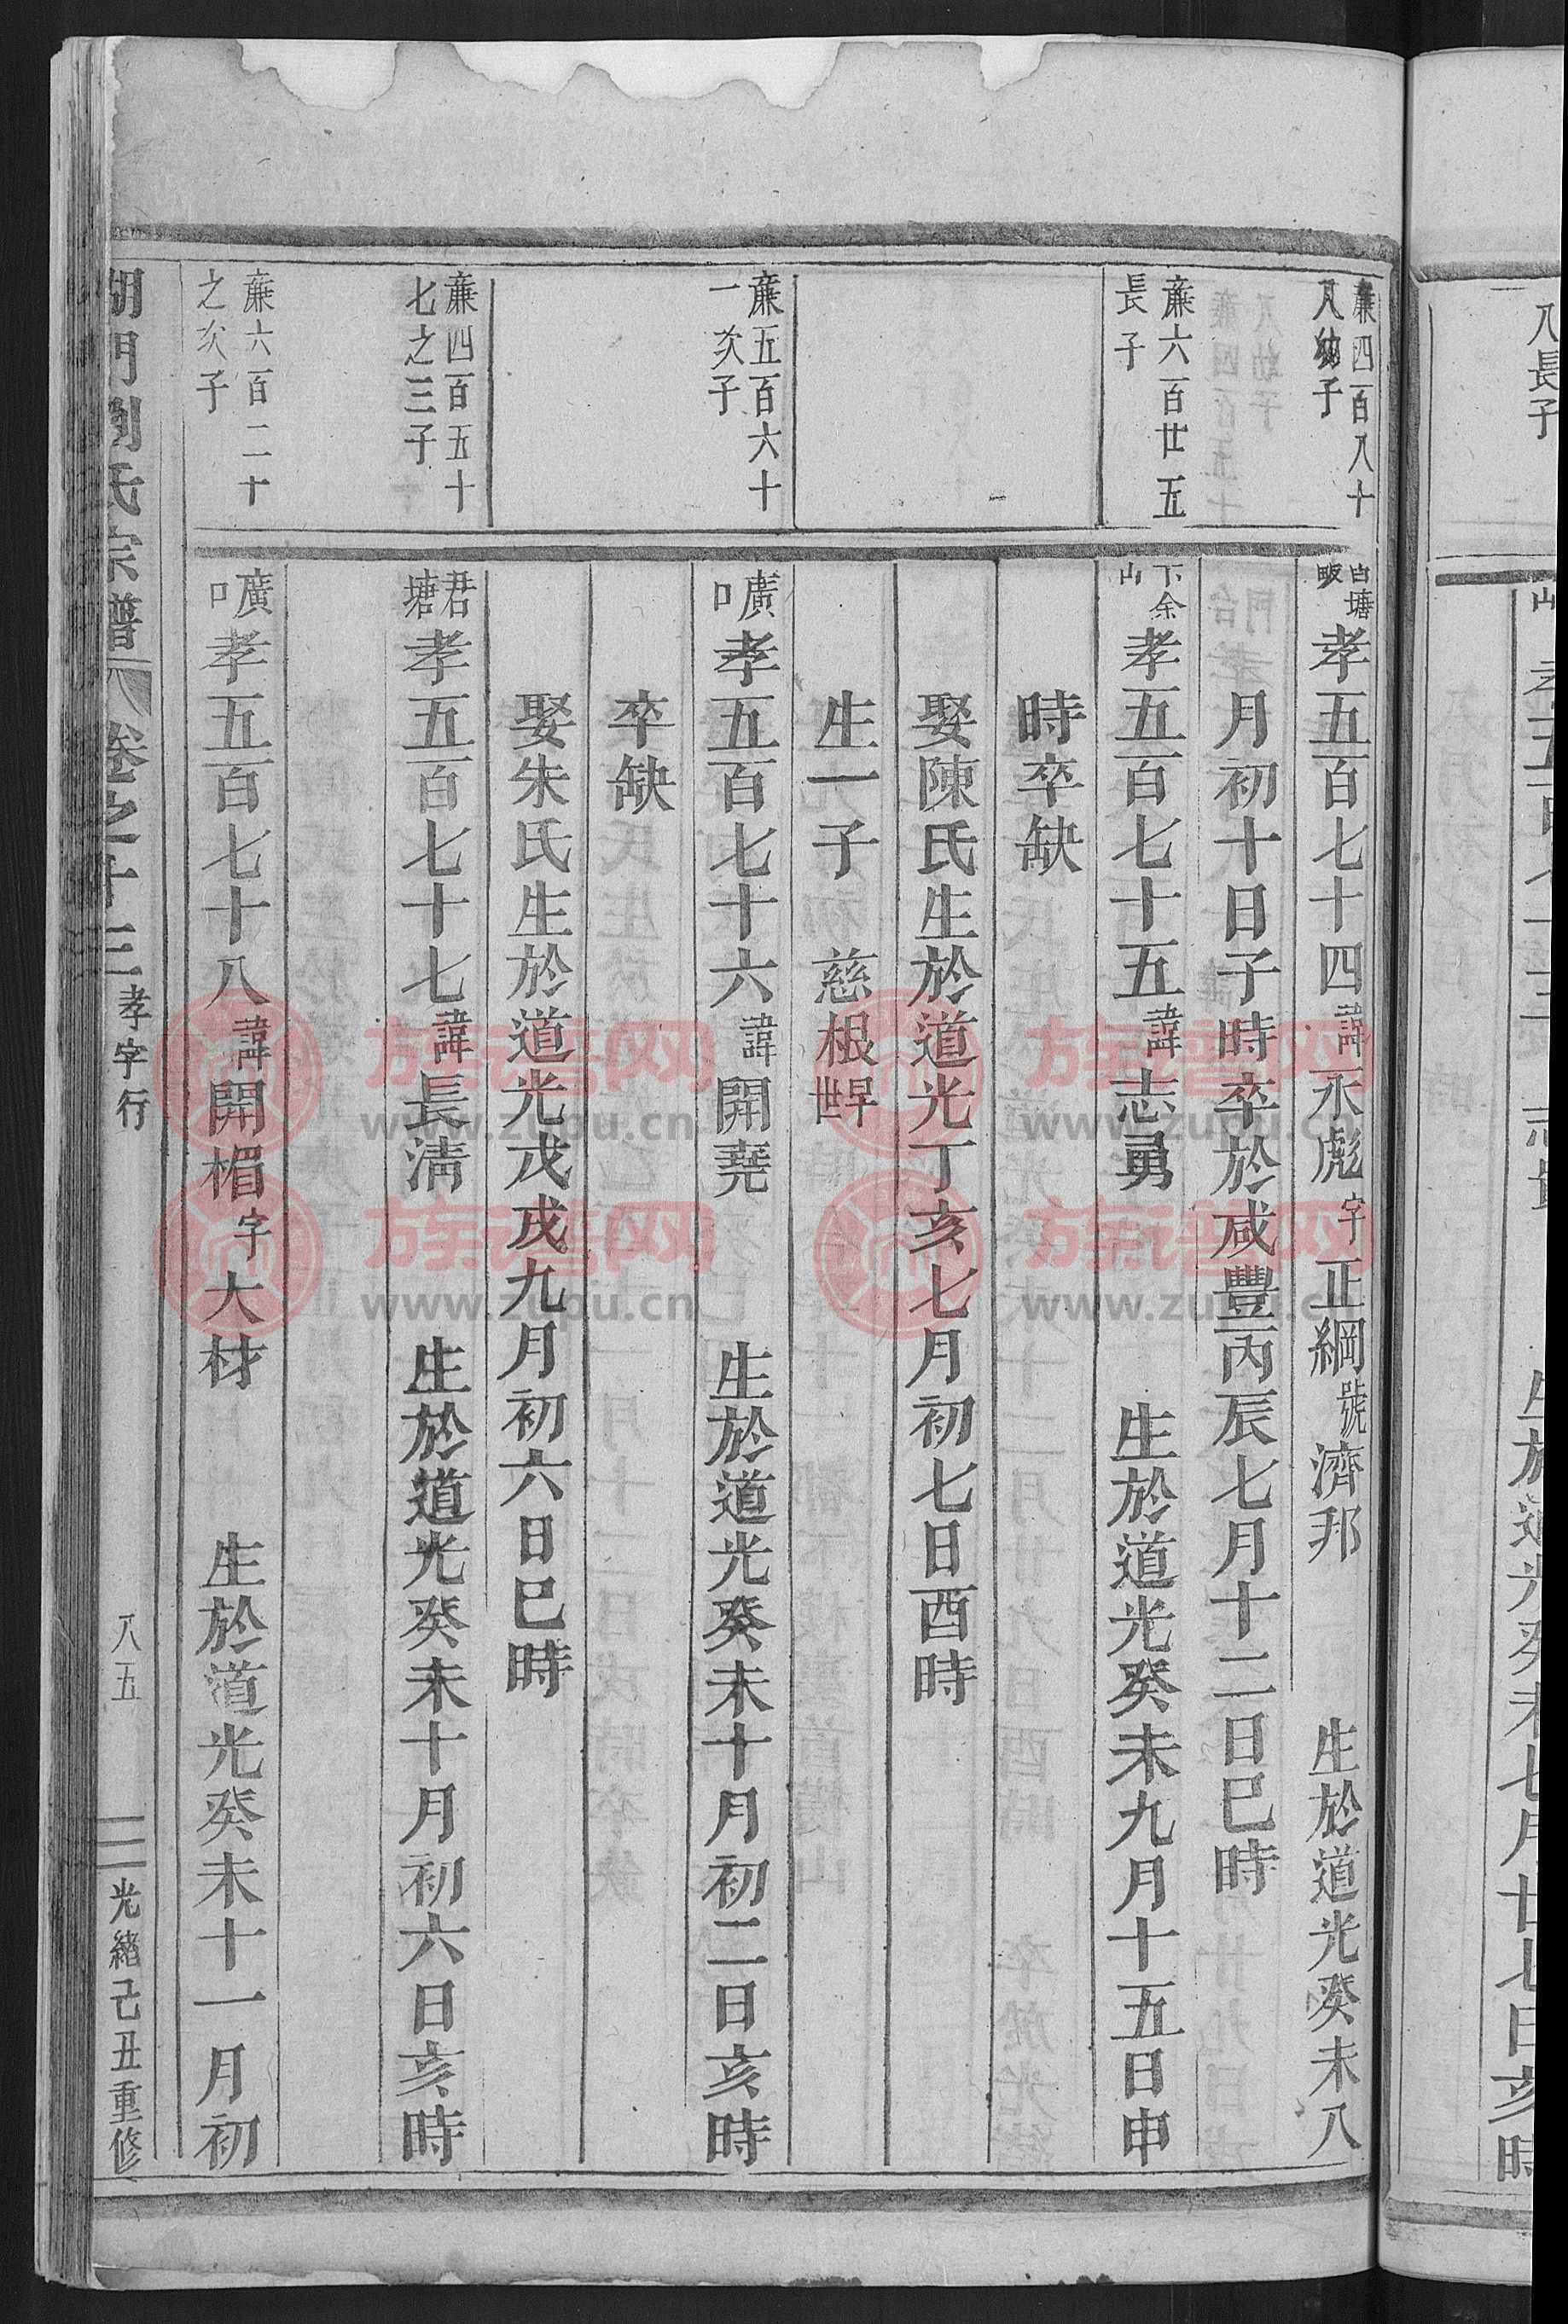 八長子
生於道光癸未七月廿七日亥時
廉四百八十
八幼子
白塘
畈
孝五百七十四諱永彪字正綱號濟邦 生於道光癸未八
月初十日子時卒於咸豐丙辰七月十二日巳時
廉六百廿五
長子
下余
山
孝五百七十五諱志勇 生於道光癸未九月十五日申
時卒缺
娶陳氏生於道光丁亥七月初七日酉時
生一子 慈根早世
廉五百六十
一次子
廣
口
孝五百七十六諱開堯 生於道光癸未十月初二日亥時
卒缺
娶朱氏生於道光戊戌九月初六日巳時
廉四百五十
七之三子
君
塘
孝五百七十七諱長清 生於道光癸未十月初六日亥時
廉六百二十
之次子
廣
口
孝五百七十八諱開楣字大材 生於道光癸未十一月初
湖門劉氏宗譜 卷之十三 孝字行 八五 光緒己丑重修
族谱网
www.zupu.cn
族谱网
www.zupu.cn
族谱网
www.zupu.cn
族谱网
www.zupu.cn